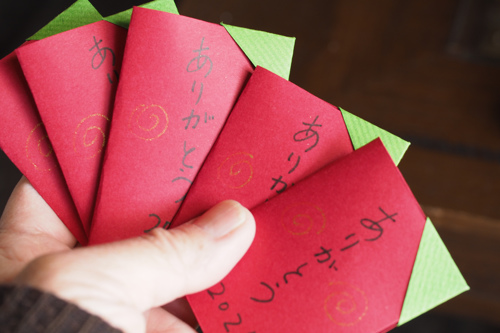 あ
ありがとう
ありが
ありがとう
202